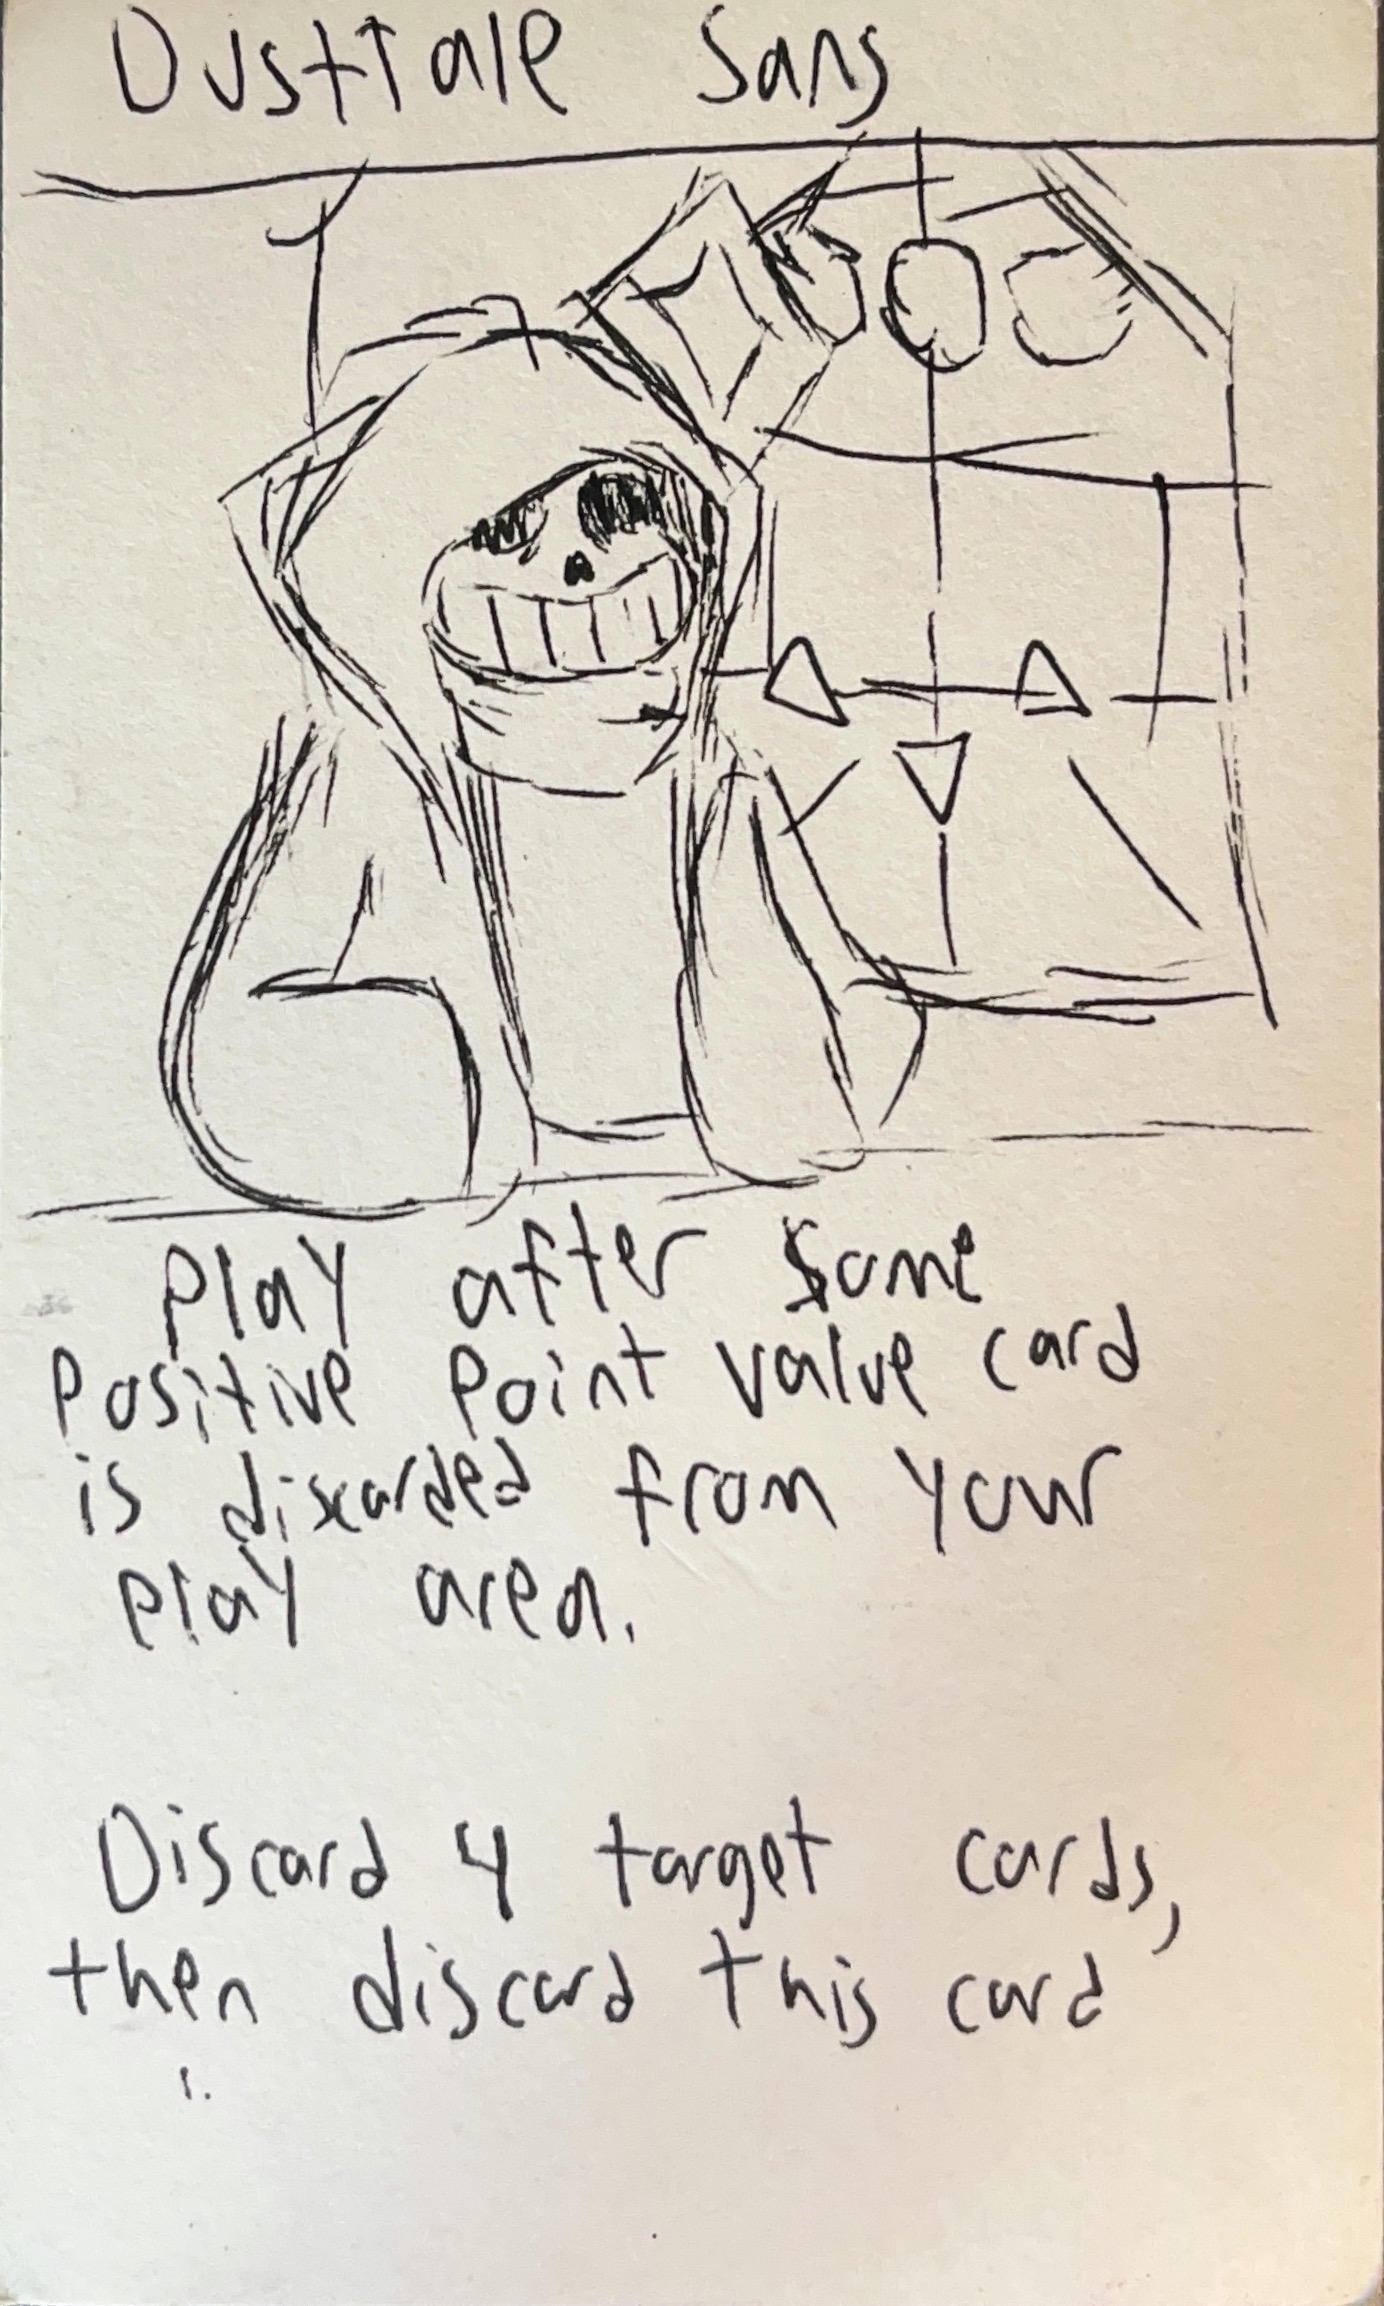 DustTale Sans
Play after some
Positive Point value card
is discarded from your
Play area.
Discard 4 target cards,
then discard this card